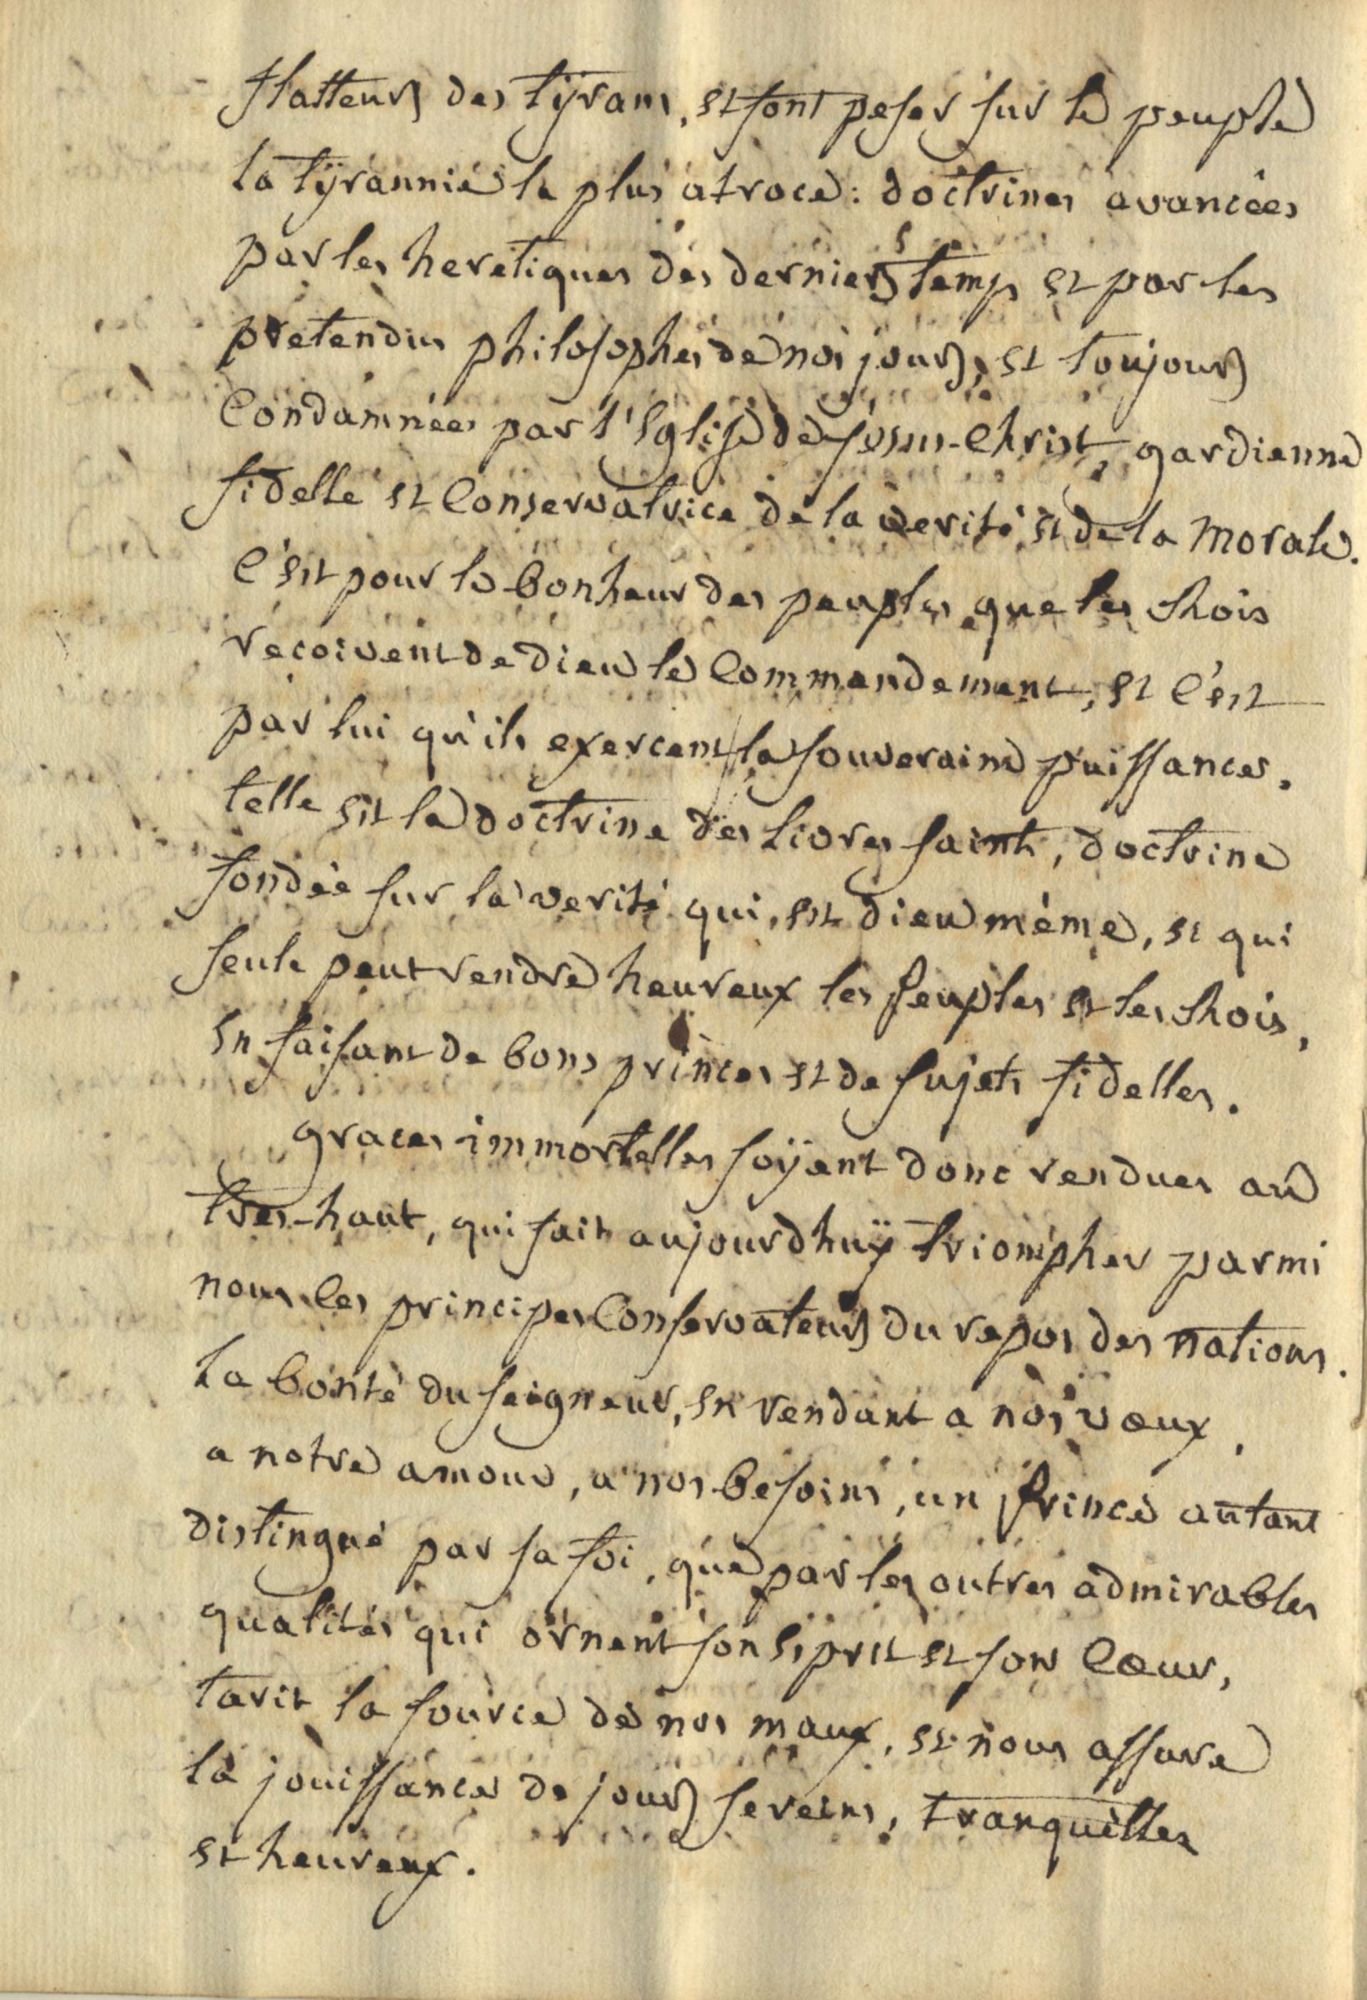 flatteurs des tÿrans, et font peser sur le peuple
la tÿrannie la plus atroce: doctrines avancées
par les heretiques des derniers temps et par les
pretendus philosophes de nos jours, et toujours
Condamnées par l'Eglise de jesus-Christ, gardienne
fidelle et Conservatrice de la verité et de la Morale.
C'est pour le bonheur des peuples que les Rois
recoivent de dieu le Commandement, et C'est
par lui qu'ils exercent la souveraine puissance.
telle est la doctrine des Livres saints, doctrine
fondée sur la verité qui est dieu même, et qui
seule peut rendre heureux les Peuples et les Rois,
En faisant de bons princes et de sujets fidelles.
graces immortelles soÿent donc rendues au
tres-haut, qui fait aujourdhuÿ triompher parmi
nous les principes Conservateurs du repos des nations.
La bonté du seigneur, en rendant a nos vœux,
a notre amour, a nos besoins, un Prince autant
distingué par sa foi, que par les autres admirables
qualités qui ornent son Esprit et son Cœur,
tarit la source de nos maux, et nous assure
la jouissance de jours sereins, tranquilles
et heureux.